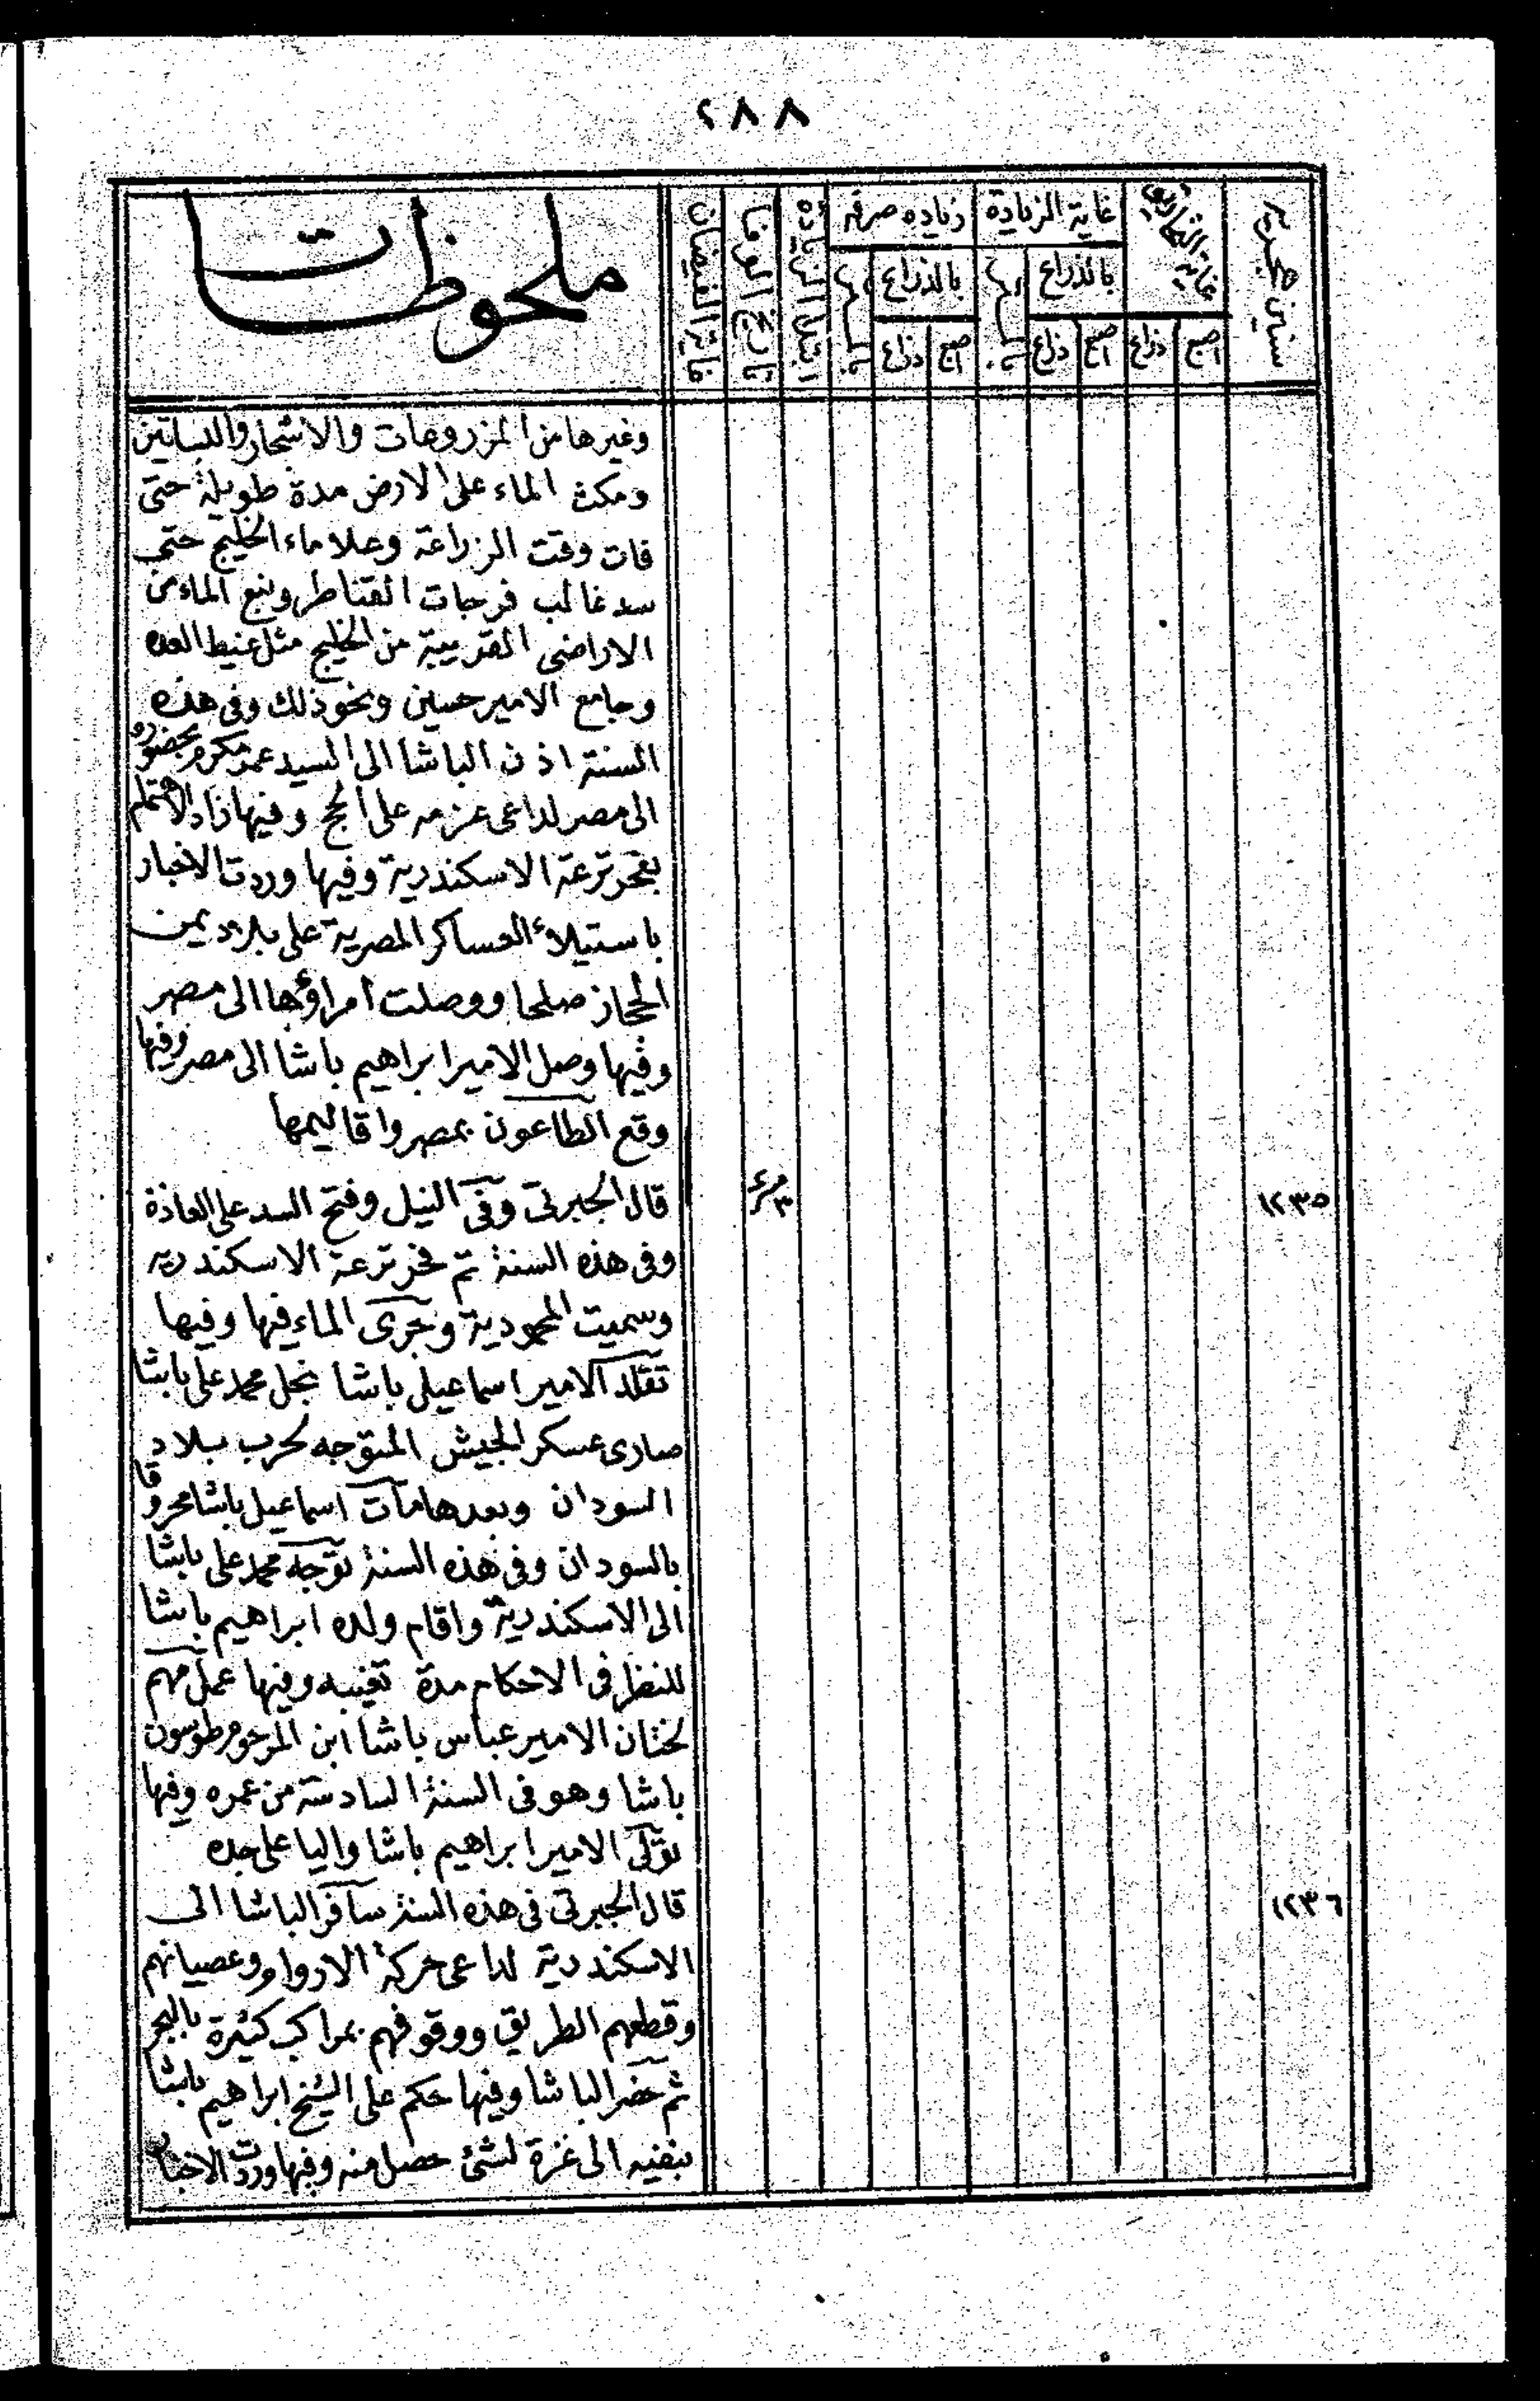 ٢٨٨
سنين هجريه
غاية التحاريق
غاية الزيادة
زياده صرفه
ابتدا الزيادة
تاريخ الوفا
ملحوظات
بالذراع
بالذراع
اصبع
ذراع
اصبع
ذراع
اصبع
ذراع
وغيرها من المزروعات والاشجار والبساتين
ومكث الماء على الارض مدة طويلة حتى
فات وقت الزراعة وعلا ماء الخليج حتى
سد غالب فرجات القناطر ونبع الماء من
الاراضى القريبة من الخليج مثل غيط العده
وجامع الامير حسين ونحو ذلك وفى هذه
السنة اذن الباشا الى السيد عمر مكرم بحضوره
الى مصر لداعى عزمه على الحج وفيها زاد الاهتمام
بحفر ترعة الاسكندرية وفيها وردت الاخبار
باستيلاء العساكر المصرية على بلاد يمن
الحجاز صلحا ووصلت امراؤها الى مصر
وفيها وصل الامير ابراهيم باشا الى مصر وفيها
وقع الطاعون بمصر واقاليمها
١٢٣٥
قال الجبرتى وفى النيل وفتح السد على العادة
وفى هذه السنة تم حفر ترعة الاسكندريه
وسميت المحمودية وجرى الماء فيها وفيها
تقلد الامير اسماعيل باشا نجل محمد على باشا
صارى عسكر الجيش المتوجه لحرب بلاد
السودان وبعدها مات اسماعيل باشا محروقا
بالسودان وفى هذه السنة توجه محمد على باشا
الى الاسكندرية واقام ولده ابراهيم باشا
للنظر فى الاحكام مدة تغيبه وفيها عمل مهم
لختان الامير عباس باشا ابن المرحوم طوسون
باشا وهو فى السنة السادسة من عمره وفيها
تولى الامير ابراهيم باشا واليا على جده
١٢٣٦
قال الجبرتى فى هذه السنة سافر الباشا الى
الاسكندرية لداعى حركة الاروام وعصيانهم
وقطعهم الطريق ووقوفهم بمراكب كثيرة بالبحر
ثم حضر الباشا وفيها حكم على الشيخ ابراهيم باشا
بنفيه الى غزة لشئ حصل منه وفيها وردت الاخبار